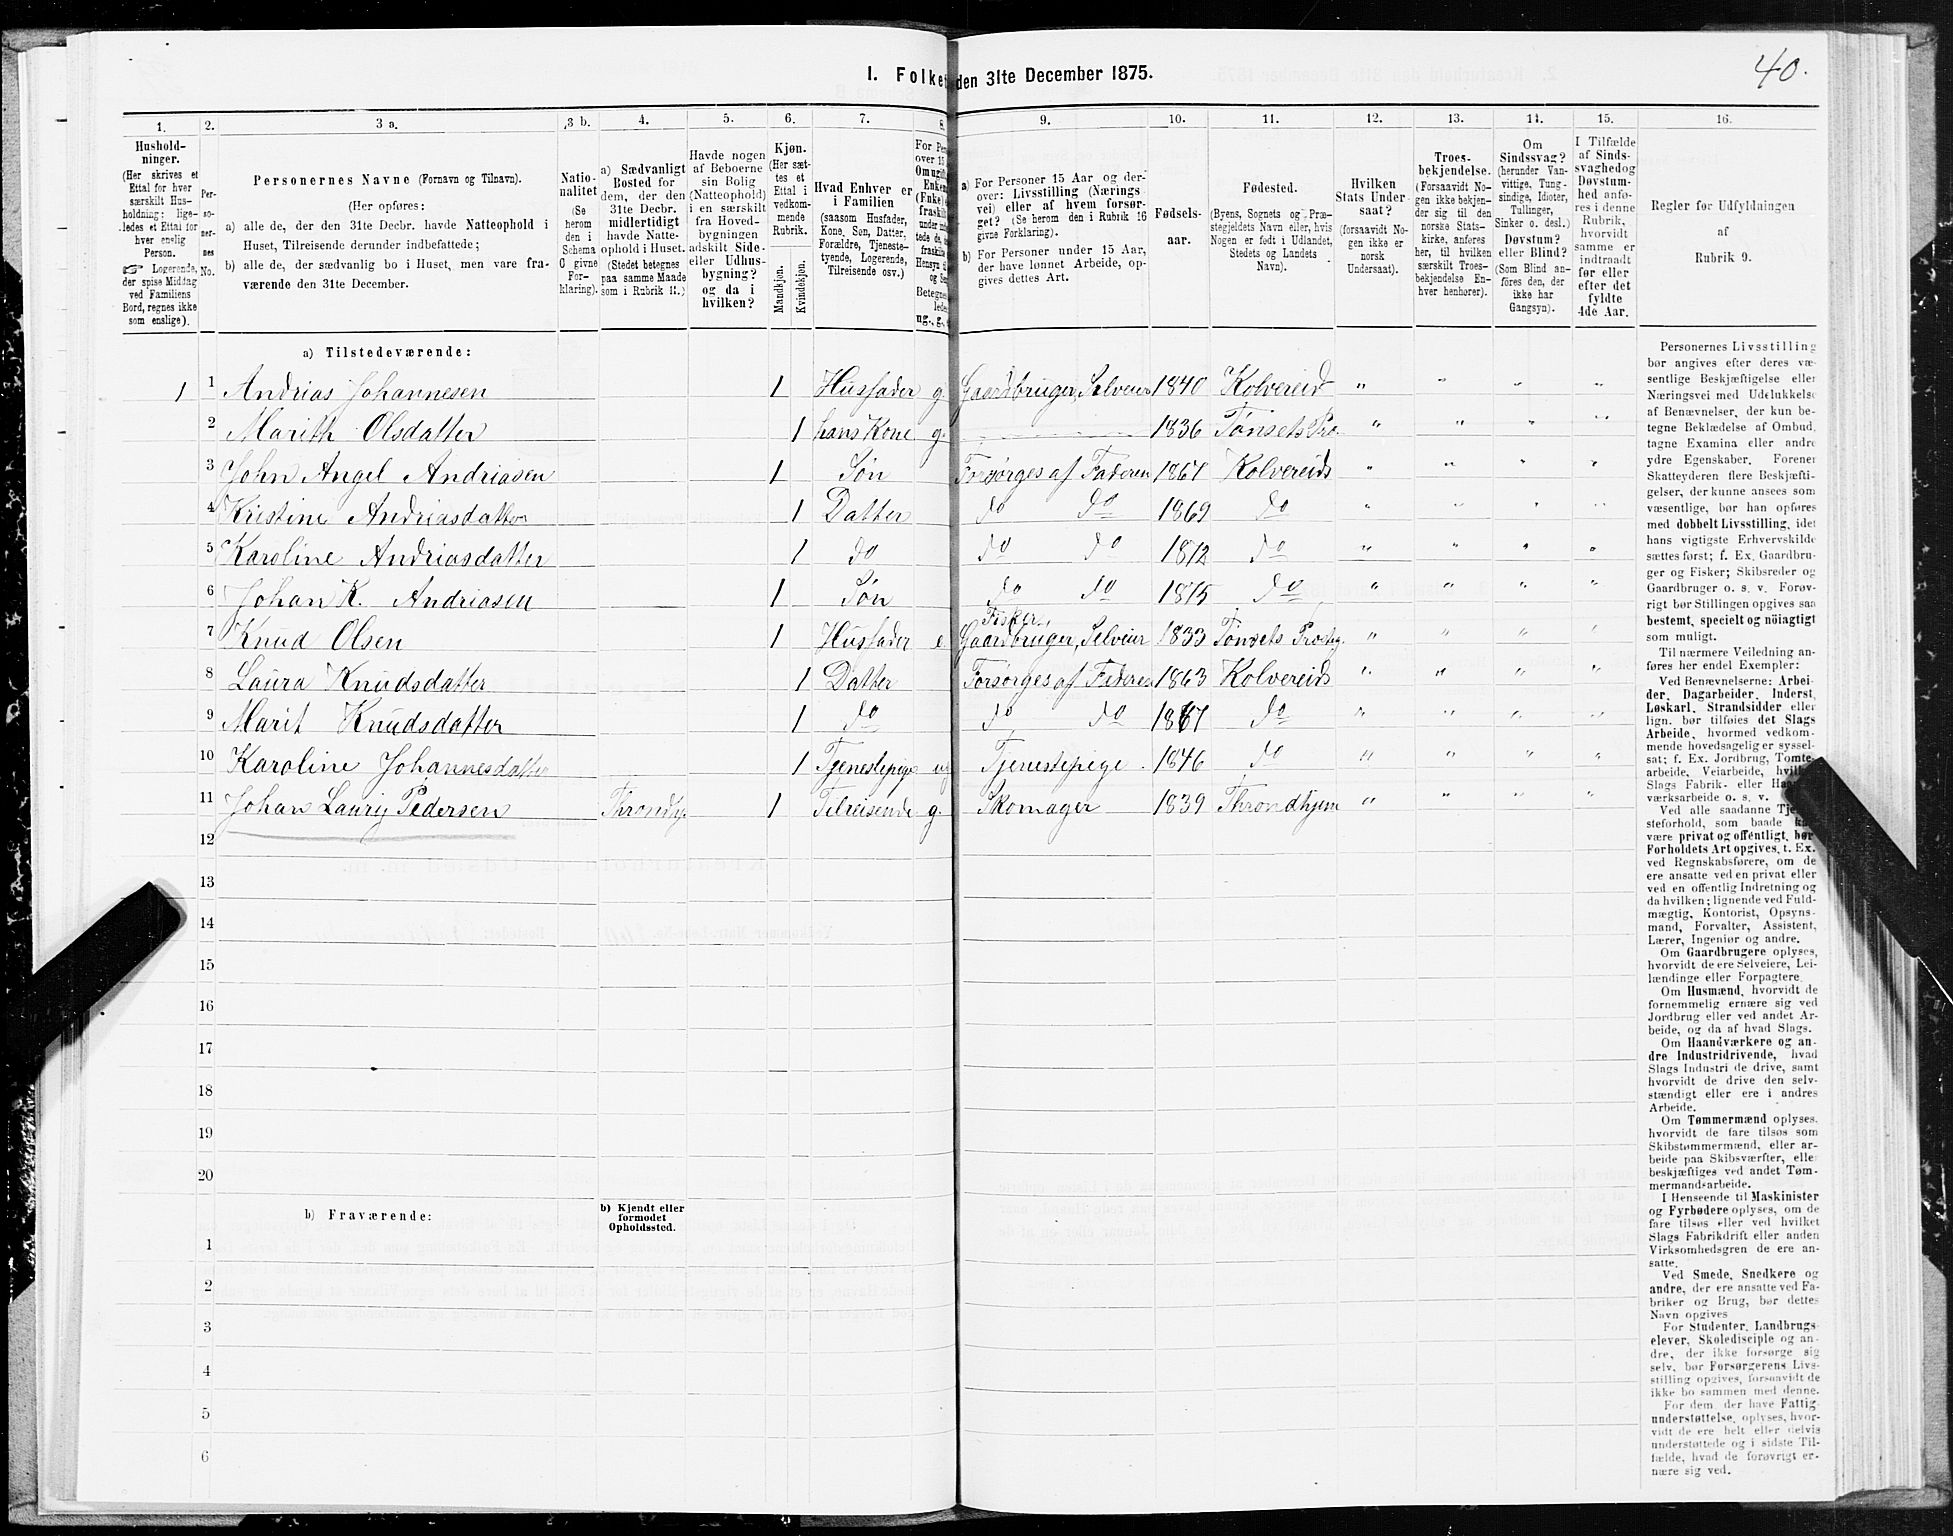 40.
1. Folke den 31te December 1875.
1. 2. 3 a. 3 b. 4. 5. 6. 7. 8. 9. 10. 11. 12. 13. 14. 15. 16.
Hushold-
ninger.
(Her skrives et
Ettal for hver
særskilt Hus-
holdning; lige-
ledes et Ettal for
hver enslig
Person.
☞ Logerende,
der spise Middag
ved Familiens
Bord, regnes ikke
som enslige).
Per-
so-
ner-
nes
No.
Personernes Navne (Fornavn og Tilnavn).
(Her opføres:
a) alle de, der den 31te Decbr. havde Natteophold i
Huset, Tilreisende derunder indbefattede;
b) alle de, der sædvanlig bo i Huset, men vare fra-
værende den 31te December.
Natio-
nalitet
(Se
herom
den i
Schema
O givne
For-
klaring).
a) Sædvanligt
Bosted for
dem, der den
31te Decbr.
midlertidigt
havde Natte-
ophold i Huset.
(Stedet betegnes
paa samme Maade
som i Rubrik 11.)
Havde nogen
af Beboerne
sin Bolig
(Natteophold)
i en særskilt
fra Hoved-
bygningen
adskilt Side-
eller Udhus-
bygning?
og da i
hvilken?
Kjøn.
(Her sæt-
tes et
Ettal i
vedkom-
mende
Rubrik.
Mandkjøn.
Kvindekjøn.
Hvad Enhver er
i Familien
(saasom Husfader,
Kone, Søn, Datter,
Forældre, Tjeneste-
tyende, Logerende,
Tilreisende osv.)
For Pe
over 15
Omugif
Enken
(Fnke)
fraskil
under
tede de,
fraskilt
Hensyn
og Se
Betegne
lede
ug., g.,
a) For Personer 15 Aar og der-
over: Livsstilling (Nærings
vei) eller af hvem forsør-
get? (Se herom den i Rubrik 16
givne Forklaring).
b) For Personer under 15 Aar,
der have lønnet Arbeide, op-
gives dettes Art.
Fødsels-
aar.
Fødested.
(Byens, Sognets og Præ-
stegjeldets Navn eller, hvis
Nogen er født i Udlandet,
Stedets og Landets
Navn).
Hvilken
Stats Under-
saat?
(forsaavidt No-
gen ikke er
norsk
Undersaat).
Troes-
bekjendelse.
(Forsaavidt No-
gen ikke bekjen-
der sig til den
norske Stats-
kirke, anføres
her, til hvilken
særskilt Troes-
bekjendelse En-
hver henhører).
Om
Sindssvag?
(herunder Van-
vittige, Tung-
sindige, Idioter,
Tullinger,
Sinker o. desl.)
Døvstum?
eller Blind?
(Som Blind an-
føres den, der
ikke har
Gangsyn).
I Tilfælde
af Sinds-
svaghed og
Døvstum-
hed anfø-
res i denne
Rubrik,
hvorvidt
samme er
indtraadt
før eller
efter det
fyldte
4de Aar.
Regler for Udfyldningen
af
Rubrik 9.
a) Tilstedeværende:
1 1 Andrias Johannesen 1 Husfader g. Gaardbruger, Selveier 1840 Kolvereid " " " "
2 Marith Olsdatter 1 hans Kone g. 1836 Tønsets Pro. " " " "
3 John Angel Andriasen 1 Søn Forsørges af Faderen 1867 Kolvereids " " " "
4 Kristine Andriasdatter 1 Datter do do 1869 do " " " "
5 Karoline Andriasdatter 1 do do do 1872 do " " " "
6 Johan K. Andriasen 1 Søn do do 1875 do " " " "
Fisker,
7 Knud Olsen 1 Husfader e. Gaardbruger, Selveier 1833 Tønsets Prostg. " " " "
8 Laura Knudsdatter 1 Datter Forsørges af Faderen 1863 Kolvereids " " " "
9 Marit Knudsdatter 1 do do do 1867 do " " " "
10 Karoline Johannesdatter 1 Tjenestepige ug Tjenestepige. 1846 do " " " "
11 Johan Lauriz Pedersen Throndhj. 1 Tilreisende g. Skomager 1839 Throndhjem " " " "
12
13
14
15
16
17
18
19
20
b) Fraværende:
b) Kjendt eller
formodet
Opholdssted.
1
2
3
4
5
6
Personernes Livsstilling
bør angives efter deres væ-
sentlige Beskjæftigelse eller
Næringsvei med Udelukkelse
af Benævnelser, der kun be-
tegne Beklædelse af Ombud,
tagne Examina eller andre
ydre Egenskaber. Forener
Skatteyderen flere Beskjæfti-
gelser, der kunne ansees som
væsentlige, bør han opføres
med dobbelt Livsstilling, idet
hans vigtigste Erhvervskilde
sættes først; f. Ex. Gaardbru-
ger og Fisker; Skibsreder og
Gaardbruger o. s. v. Forøv-
rigt bør Stillingen opgives saa
bestemt, specielt og nøiagtigt
som muligt.
Til nærmere Veiledning an-
føres her endel Exempler:
Ved Benævnelserne: Arbei-
der, Dagarbeider, Inderst,
Løskarl, Strandsidder eller
lign. bør tilføies det Slags
Arbeide, hvormed vedkom-
mende hovedsagelig er syssel-
sat; f. Ex. Jordbrug, Tomte-
arbeide, Veiarbeide, hvilket
Slags Fabrik- eller Haand-
værksarbeide o. s. v.
Ved alle saadanne Tje-
nesteforhold, som baade kan
være privat og offentligt, bør
Forholdets Art opgives, t. Ex.
ved Regnskabsførere, om de
ere ansatte ved en privat eller
ved en offentlig Indretning og
da hvilken; lignende ved Fuld-
mægtig, Kontorist, Opsyns-
mand, Forvalter, Assistent,
Lærer, Ingeniør og andre.
Om Gaardbrugere oplyses,
hvorvidt de ere Selveiere, Lei-
lændinge eller Forpagtere.
Om Husmænd, hvorvidt de
fornemmelig ernære sig ved
Jordbrug eller ved andet Ar-
beide, og da af hvad Slags.
Om Haandværkere og an-
dre Industridrivende, hvad
Slags Industri de drive, samt
hvorvidt de drive den selv-
stændigt eller ere i andres
Arbeide.
Om Tømmermænd oplyses,
hvorvidt de fare tilsøs som
Skibstømmermænd, eller ar-
beide paa Skibsværfter, eller
beskjæftiges ved andet Tøm-
mermandsarbeide.
I Henseende til Maskinister
og Fyrbødere oplyses, om de
fare tilsøs eller ved hvilket
Slags Fabrikdrift eller anden
Virksomhedsgren de ere an-
satte.
Ved Smede, Snedkere og
andre, der ere ansatte ved Fa-
briker og Brug, bør dettes
Navn opgives
For Studenter, Landbrugs-
elever, Skoledisciple og an-
dre, der ikke forsørge sig
selv, bør Forsørgerens Livs-
stilling opgives, forsaavidt de
ikke bo sammen med denne.
For dem, der have Fattig-
understøttelse, oplyses, hvor-
vidt de ere helt eller delvis
understøttede og i sidste Til-
fælde, hvad de forøvrigt er-
nære sig ved.